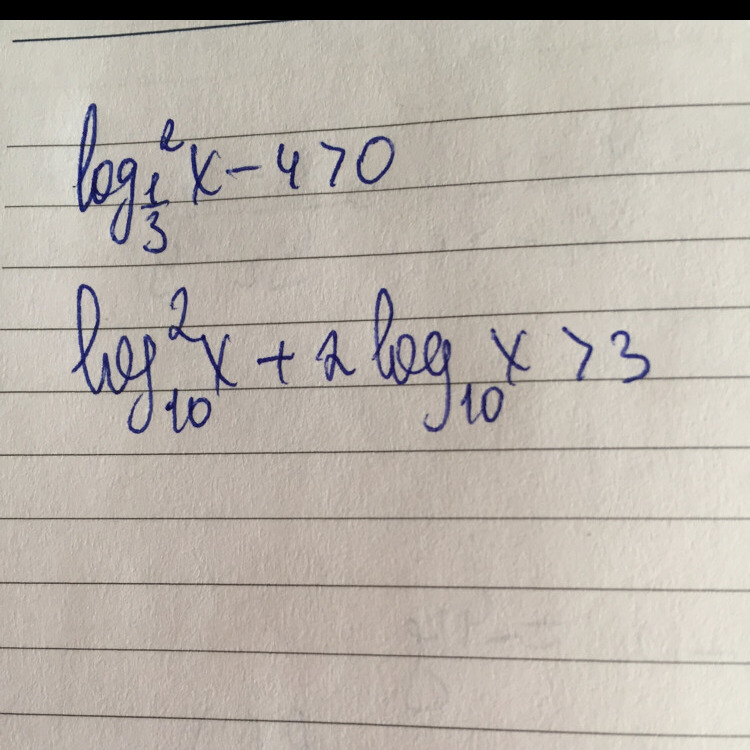 log²_{1/3} x - 4 > 0
log²_{10} x + 2 log_{10} x > 3